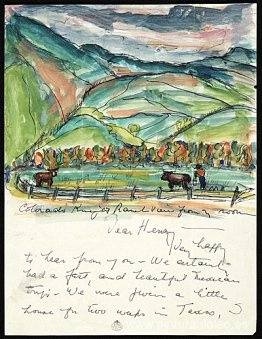 Colorado King's Ranch View from my room
Dear Henry —
Very happy
to hear from you — We actually
had a fast, and beautiful Mexican
trip — We were given a little
house for two weeks in Taxco, S